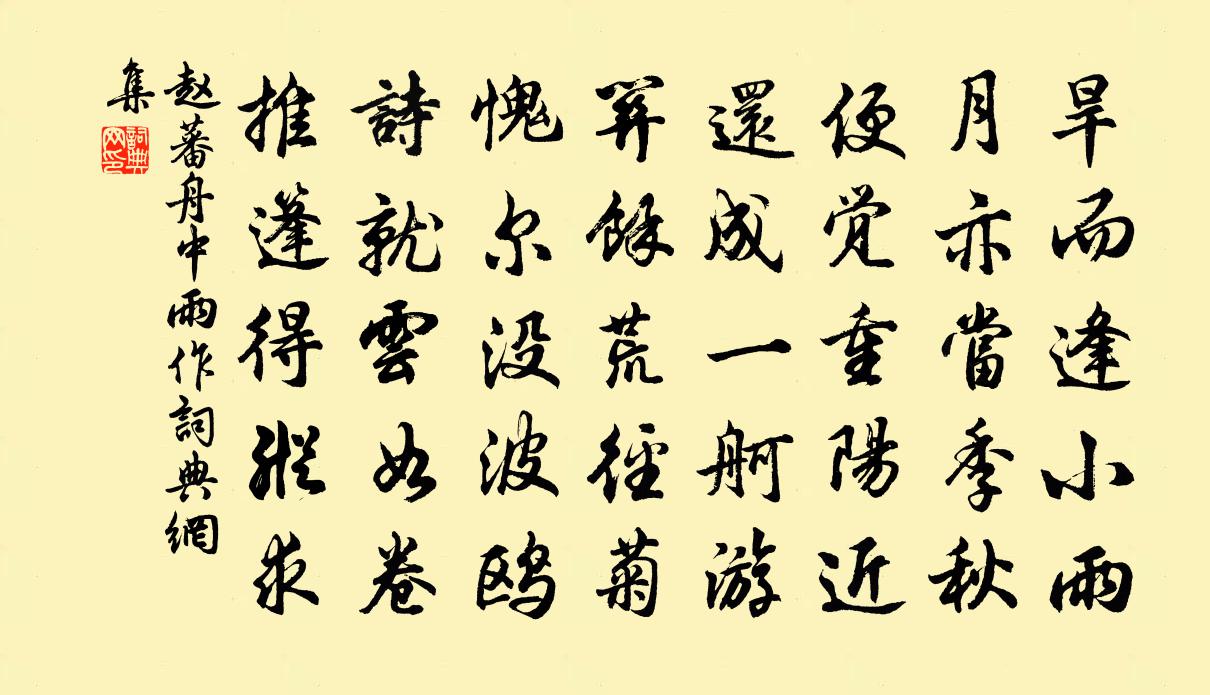 旱而逢小雨
月亦當季秋
便觉重陽近
還成一舸游
餘荒徑菊
愧尔没波鸥
詩就雲如卷
推篷得縱求
赵蕃舟中雨作詞典網
集
詞典网印